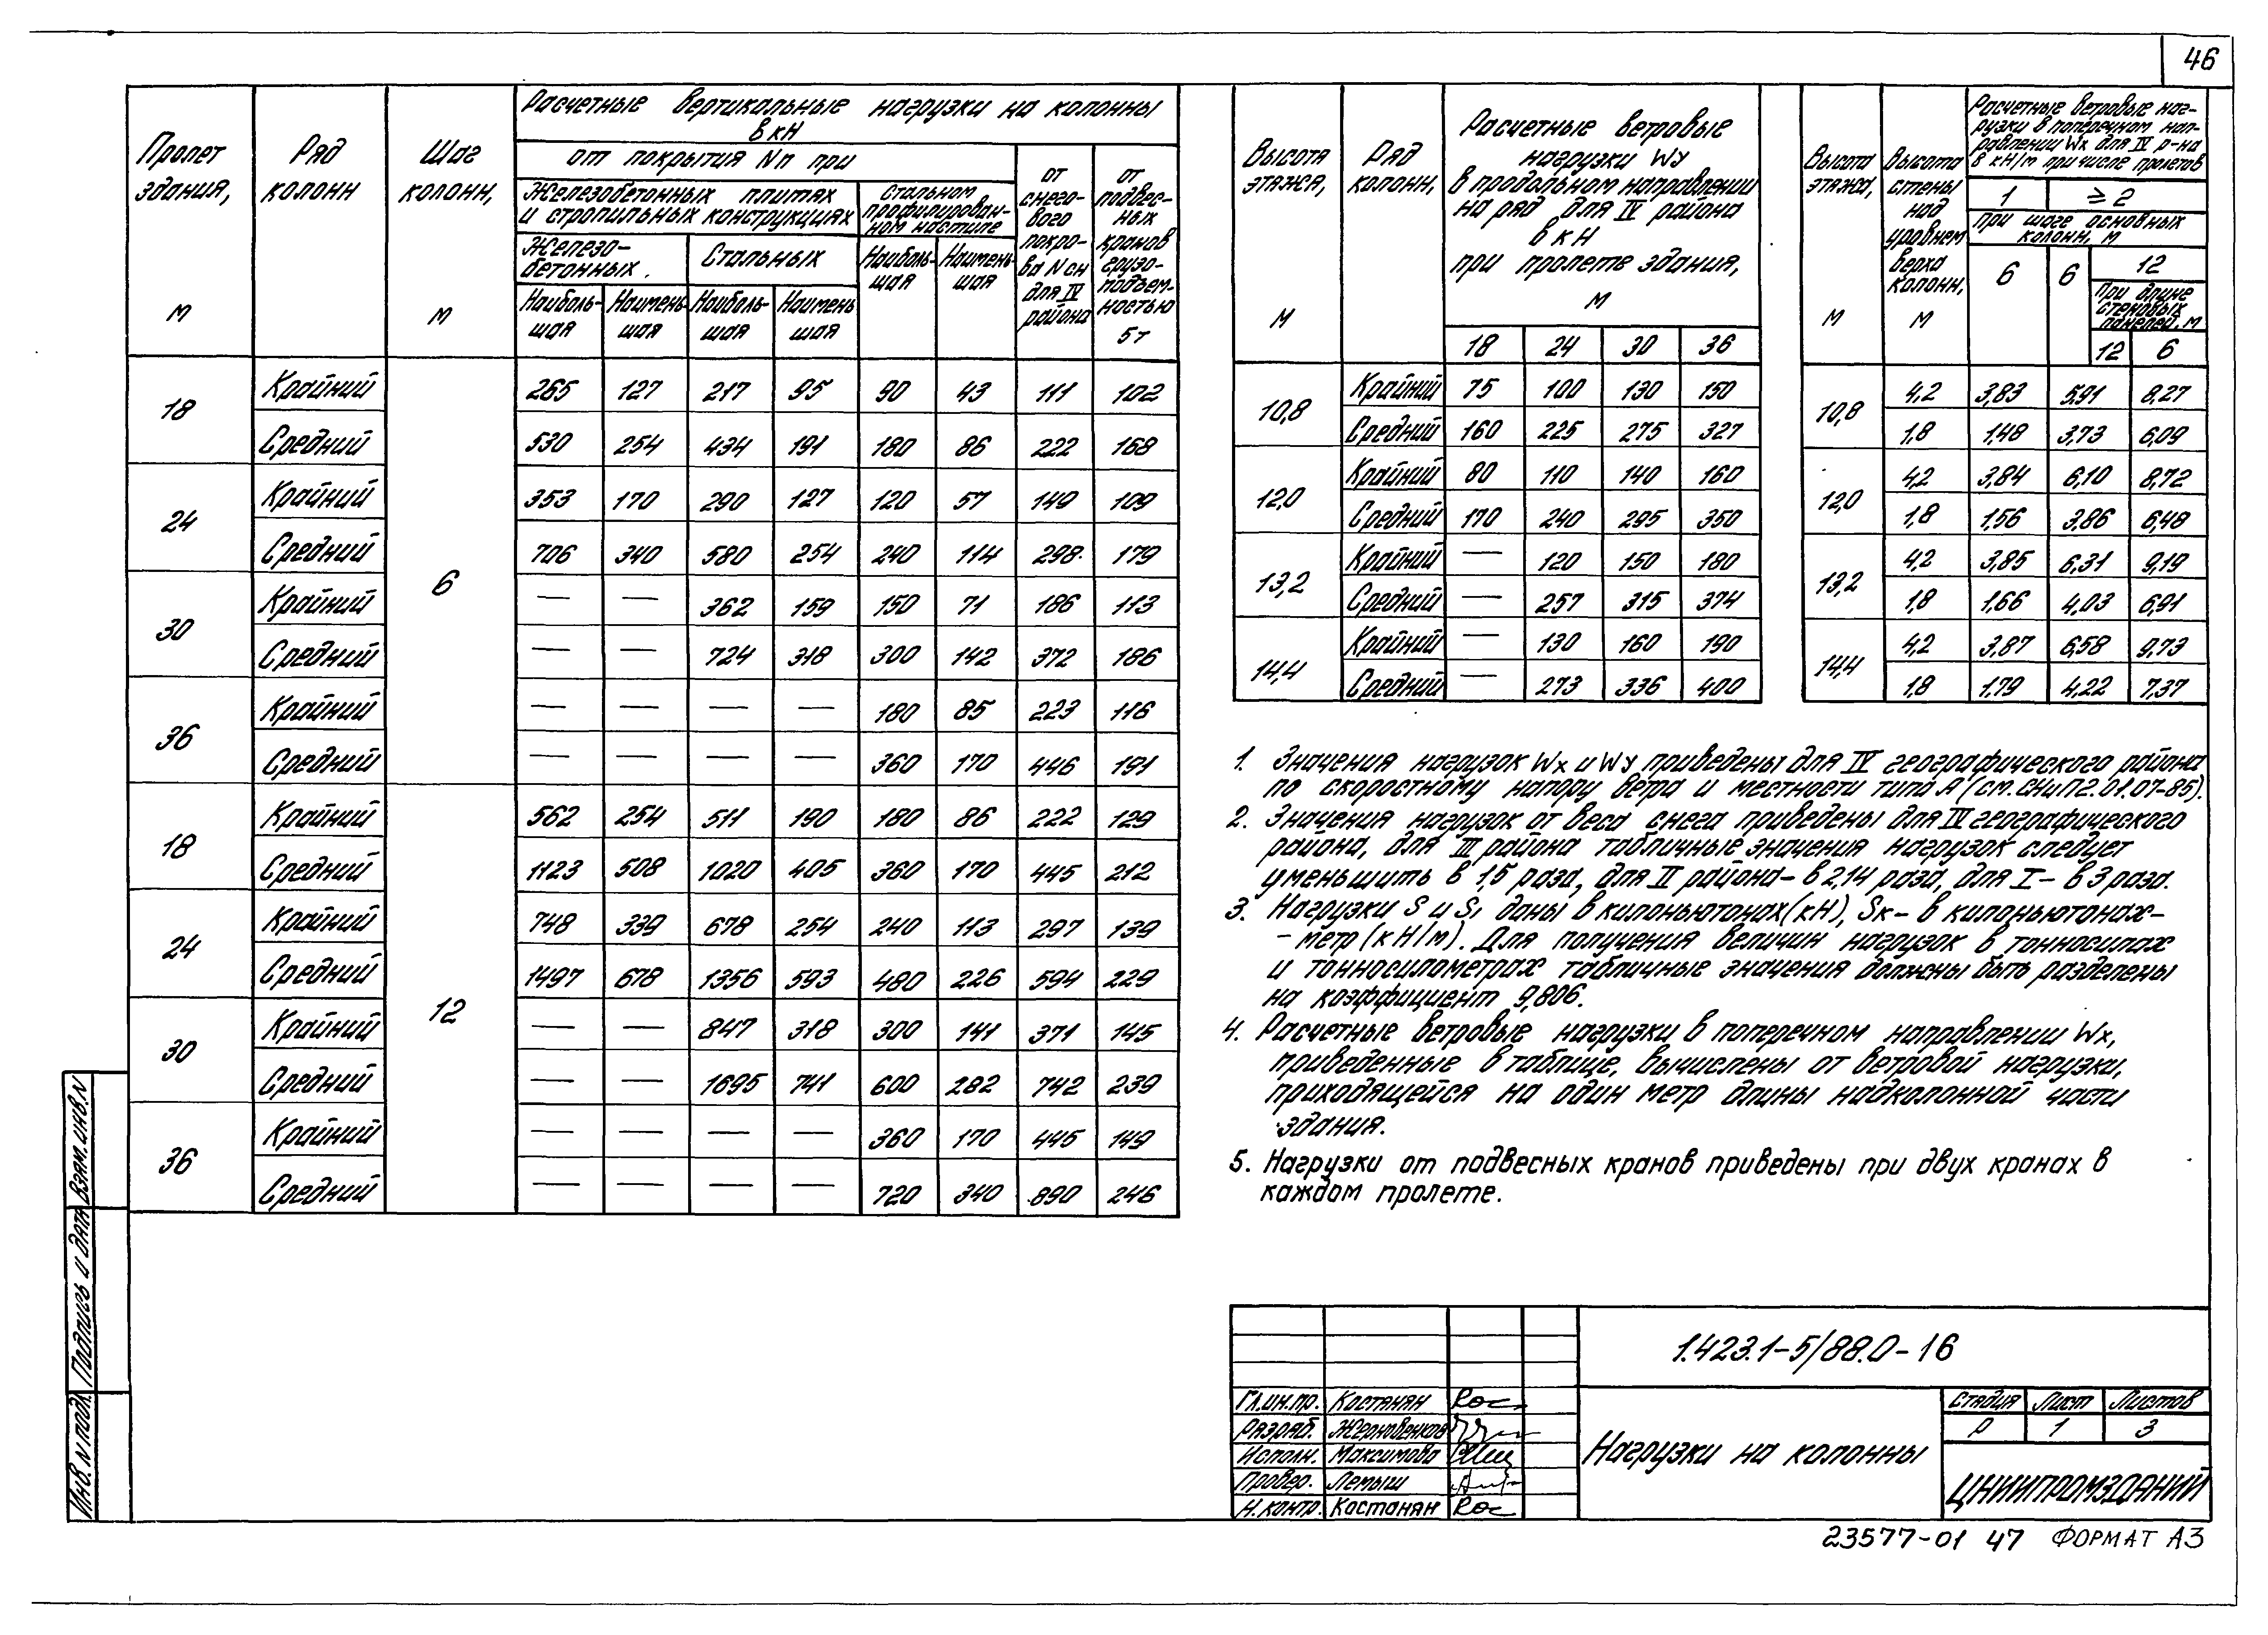 46
Пролет здания, м
Ряд колонн
Шаг колонн, м
Расчетные вертикальные нагрузки на колонны
в кН
от покрытия Nп при
Железобетонных плитах
и стропильных конструкциях
Стальном
профилирован-
ном настиле
Железо-
бетонных
Стальных
Наиболь-
шая
Наимень
шая
Наиболь-
шая
Наимень
шая
Наиболь-
шая
Наимень-
шая
от
снего-
вого
покро-
ва Nсн
для IV
района
от
подвес-
ных
кранов
грузо-
подъем-
ностью
5т
18 Крайний 6 265 127 217 95 90 43 111 102
Средний 530 254 434 191 180 86 222 168
24 Крайний 353 170 290 127 120 57 149 109
Средний 706 340 580 254 240 114 298 179
30 Крайний — — 362 159 150 71 186 113
Средний — — 724 318 300 142 372 186
36 Крайний — — — — 180 85 223 116
Средний — — — — 360 170 446 191
18 Крайний 12 562 254 511 190 180 86 222 129
Средний 1123 508 1020 405 360 170 445 212
24 Крайний 748 339 678 254 240 113 297 139
Средний 1497 678 1356 593 480 226 594 229
30 Крайний — — 847 318 300 141 371 145
Средний — — 1695 741 600 282 742 239
36 Крайний — — — — 360 170 445 149
Средний — — — — 720 340 890 246
Высота этажа, м
Ряд колонн,
Расчетные ветровые
нагрузки Wу
в продольном направлении
на ряд для IV района
в кН
при пролете здания,
м
18 24 30 36
10,8 Крайний 75 100 130 150
Средний 160 225 275 327
12,0 Крайний 80 110 140 160
Средний 170 240 295 350
13,2 Крайний — 120 150 180
Средний — 257 315 374
14,4 Крайний — 130 160 190
Средний — 273 336 400
Высота этажа, м
Высота
стены
над
уровнем
верха
колонн,
м
Расчетные ветровые наг-
рузки в поперечном нап-
равлении Wx для IV р-на
в кН/м при числе пролетов
1 ≥ 2
при шаге основных
колонн, м
6 6 12
При длине
стеновых
панелей, м
12 6
10,8 4,2 3,83 5,91 8,27
1,8 1,48 3,73 6,09
12,0 4,2 3,84 6,10 8,72
1,8 1,56 3,86 6,48
13,2 4,2 3,85 6,31 9,19
1,8 1,66 4,03 6,91
14,4 4,2 3,87 6,58 9,73
1,8 1,79 4,22 7,37
1. Значения нагрузок Wx и Wу приведены для IV географического района
по скоростному напору ветра и местности типа А (см. СНиП2.01.07-85).
2. Значения нагрузок от веса снега приведены для IV географического
района, для III района табличные значения нагрузок следует
уменьшить в 1,5 раза, для II района- в 2,14 раза, для I- в 3 раза.
3. Нагрузки S и S₁ даны в килоньютонах (кН), Sк- в килоньютонах-
-метр (кН/м). Для получения величин нагрузок в тонносилах
и тонносилометрах табличные значения должны быть разделены
на коэффициент 9,806.
4. Расчетные ветровые нагрузки в поперечном направлении Wx,
приведенные в таблице, вычислены от ветровой нагрузки,
приходящейся на один метр длины надколонной части
здания.
5. Нагрузки от подвесных кранов приведены при двух кранах в
каждом пролете.
Взам. инв. N
Подпись и дата
Инв. N подл.
1.423.1-5/88.0-16
Гл.ин.пр. Костанян
Разраб. Жерновенков
Исполн. Максимова
Провер. Лемыш
Н.контр. Костанян
Нагрузки на колонны
Стадия Лист Листов
Р 1 3
ЦНИИПРОМЗДАНИЙ
23577-01 47 ФОРМАТ А3